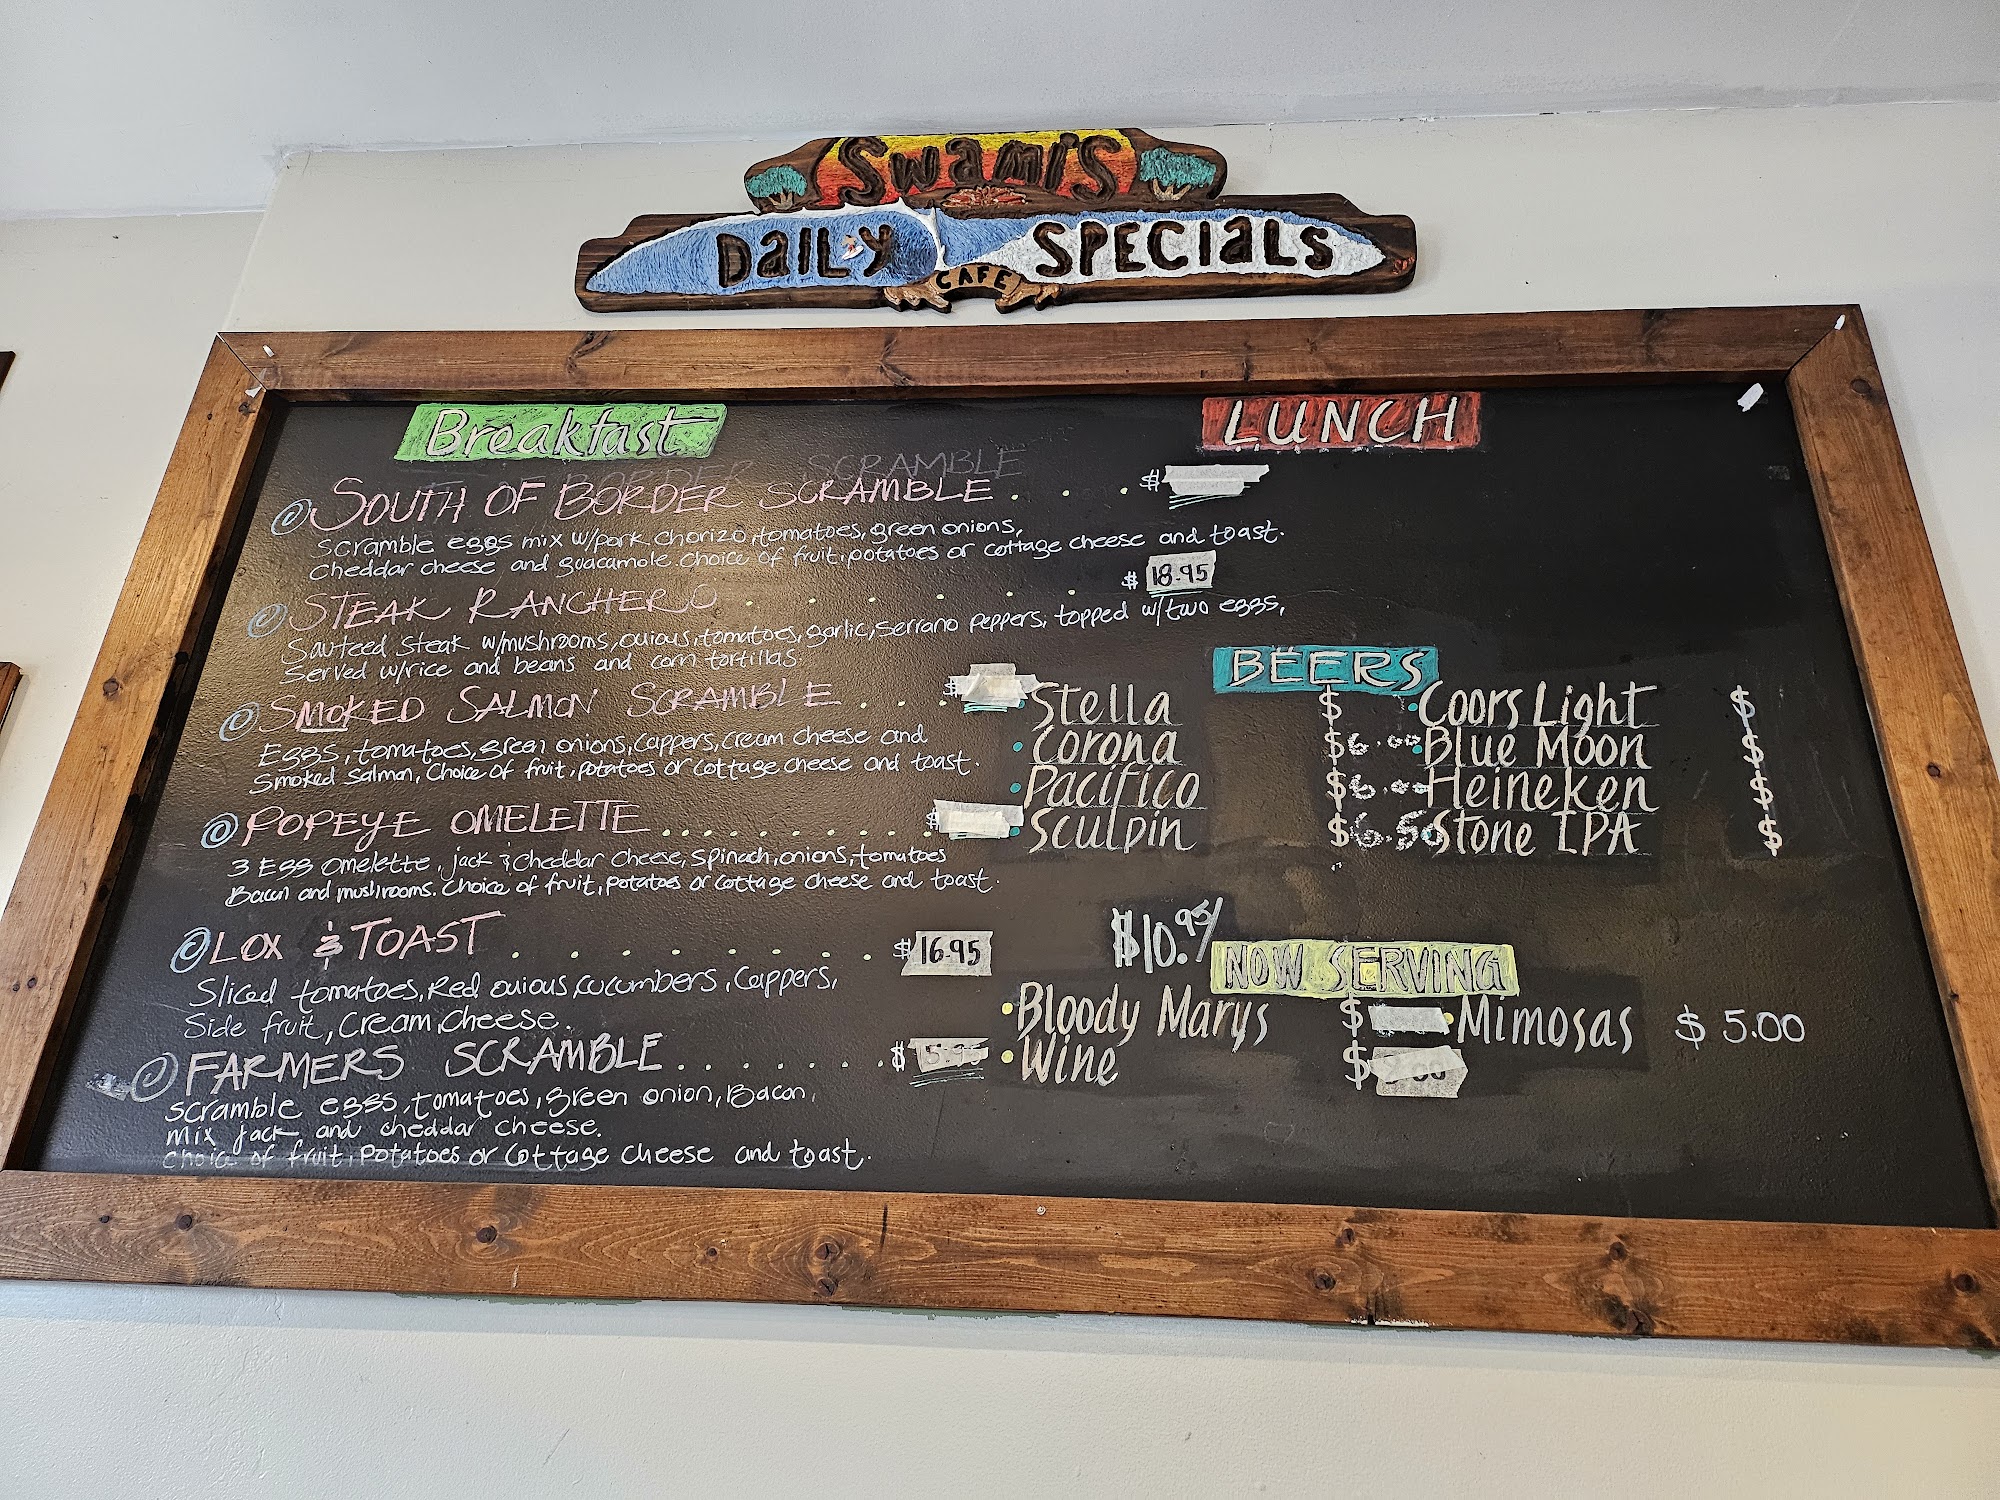 Swamis
Daily Specials
CAFE
Breakfast
SOUTH OF BORDER SCRAMBLE . . . . $
Scramble eggs mix w/pork chorizo, tomatoes, green onions,
Cheddar cheese and guacamole. Choice of fruit, potatoes or cottage cheese and toast.
STEAK RANCHERO . . . . . . $ 18.95
Sauteed Steak w/mushrooms, onions, tomatoes, garlic, Serrano peppers, topped w/two eggs,
Served w/rice and beans and corn tortillas.
SMOKED SALMON SCRAMBLE . . . . $
Eggs, tomatoes, green onions, Cappers, cream cheese and
Smoked Salmon, Choice of fruit, potatoes or cottage cheese and toast.
POPEYE OMELETTE . . . . . . . . . . . $
3 Egg omelette, jack & cheddar cheese, Spinach, onions, tomatoes
Bacon and mushrooms. Choice of fruit, potatoes or cottage cheese and toast.
LOX & TOAST . . . . . . . . $ 16.95
Sliced tomatoes, Red onions, cucumbers, Cappers,
Side fruit, Cream cheese.
FARMERS SCRAMBLE . . . . . . . $
Scramble eggs, tomatoes, green onion, Bacon,
mix jack and cheddar cheese.
Choice of fruit, Potatoes or Cottage cheese and toast.
LUNCH
BEERS
Stella $
Corona $6.00
Pacifico $6.00
Sculpin $6.50
Coors Light $
Blue Moon $
Heineken $
Stone IPA $
$10.95/
NOW SERVING
Bloody Marys $
Mimosas $ 5.00
Wine $